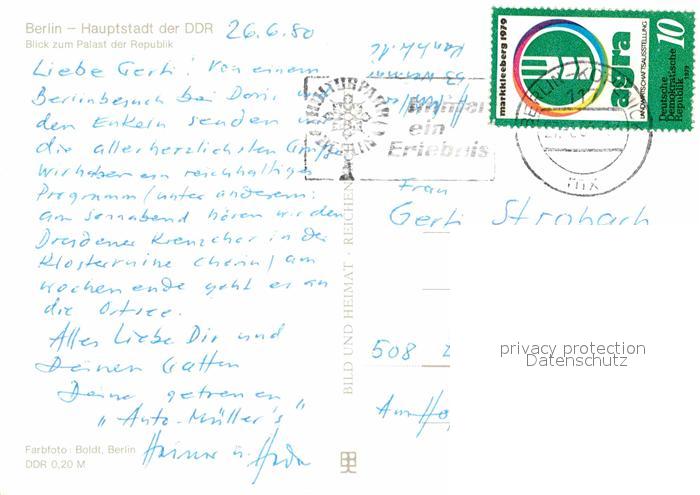 Berlin – Hauptstadt der DDR
Blick zum Palast der Republik
26.6.80
Liebe Gerti! Von einem
Berlinbesuch bei Doris u.
den Enkeln senden wir
die allerherzlichsten Grüße
Wir haben ein reichhaltiges
Programm (unter anderem:
am Sonnabend hören wir den
Dresdener Kreuzchor in der
Klosterruine Chorin) am
Wochenende geht es an
die Ostsee.
Alles Liebe Dir und
Deinem Gatten
Deine getreuen
"Auto-Müller's"
Heiner u.
Farbfoto: Boldt, Berlin
DDR 0,20 M
BILD UND HEIMAT · REICHENBACH
immer
ein
Erlebnis
markkleeberg 1979
agra
LANDWIRTSCHAFTSAUSSTELLUNG
Deutsche
Demokratische
Republik
1979
10
Frau
Gerti Strobach
508
privacy protection
Datenschutz